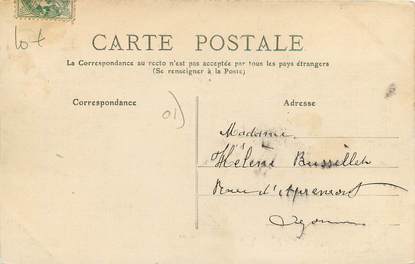 lot
CARTE POSTALE
La Correspondance au recto n'est pas acceptée par tous les pays étrangers
(Se renseigner à la Poste)
Correspondance
Adresse
01)
Madame
Hélène
Rue d'Apremont